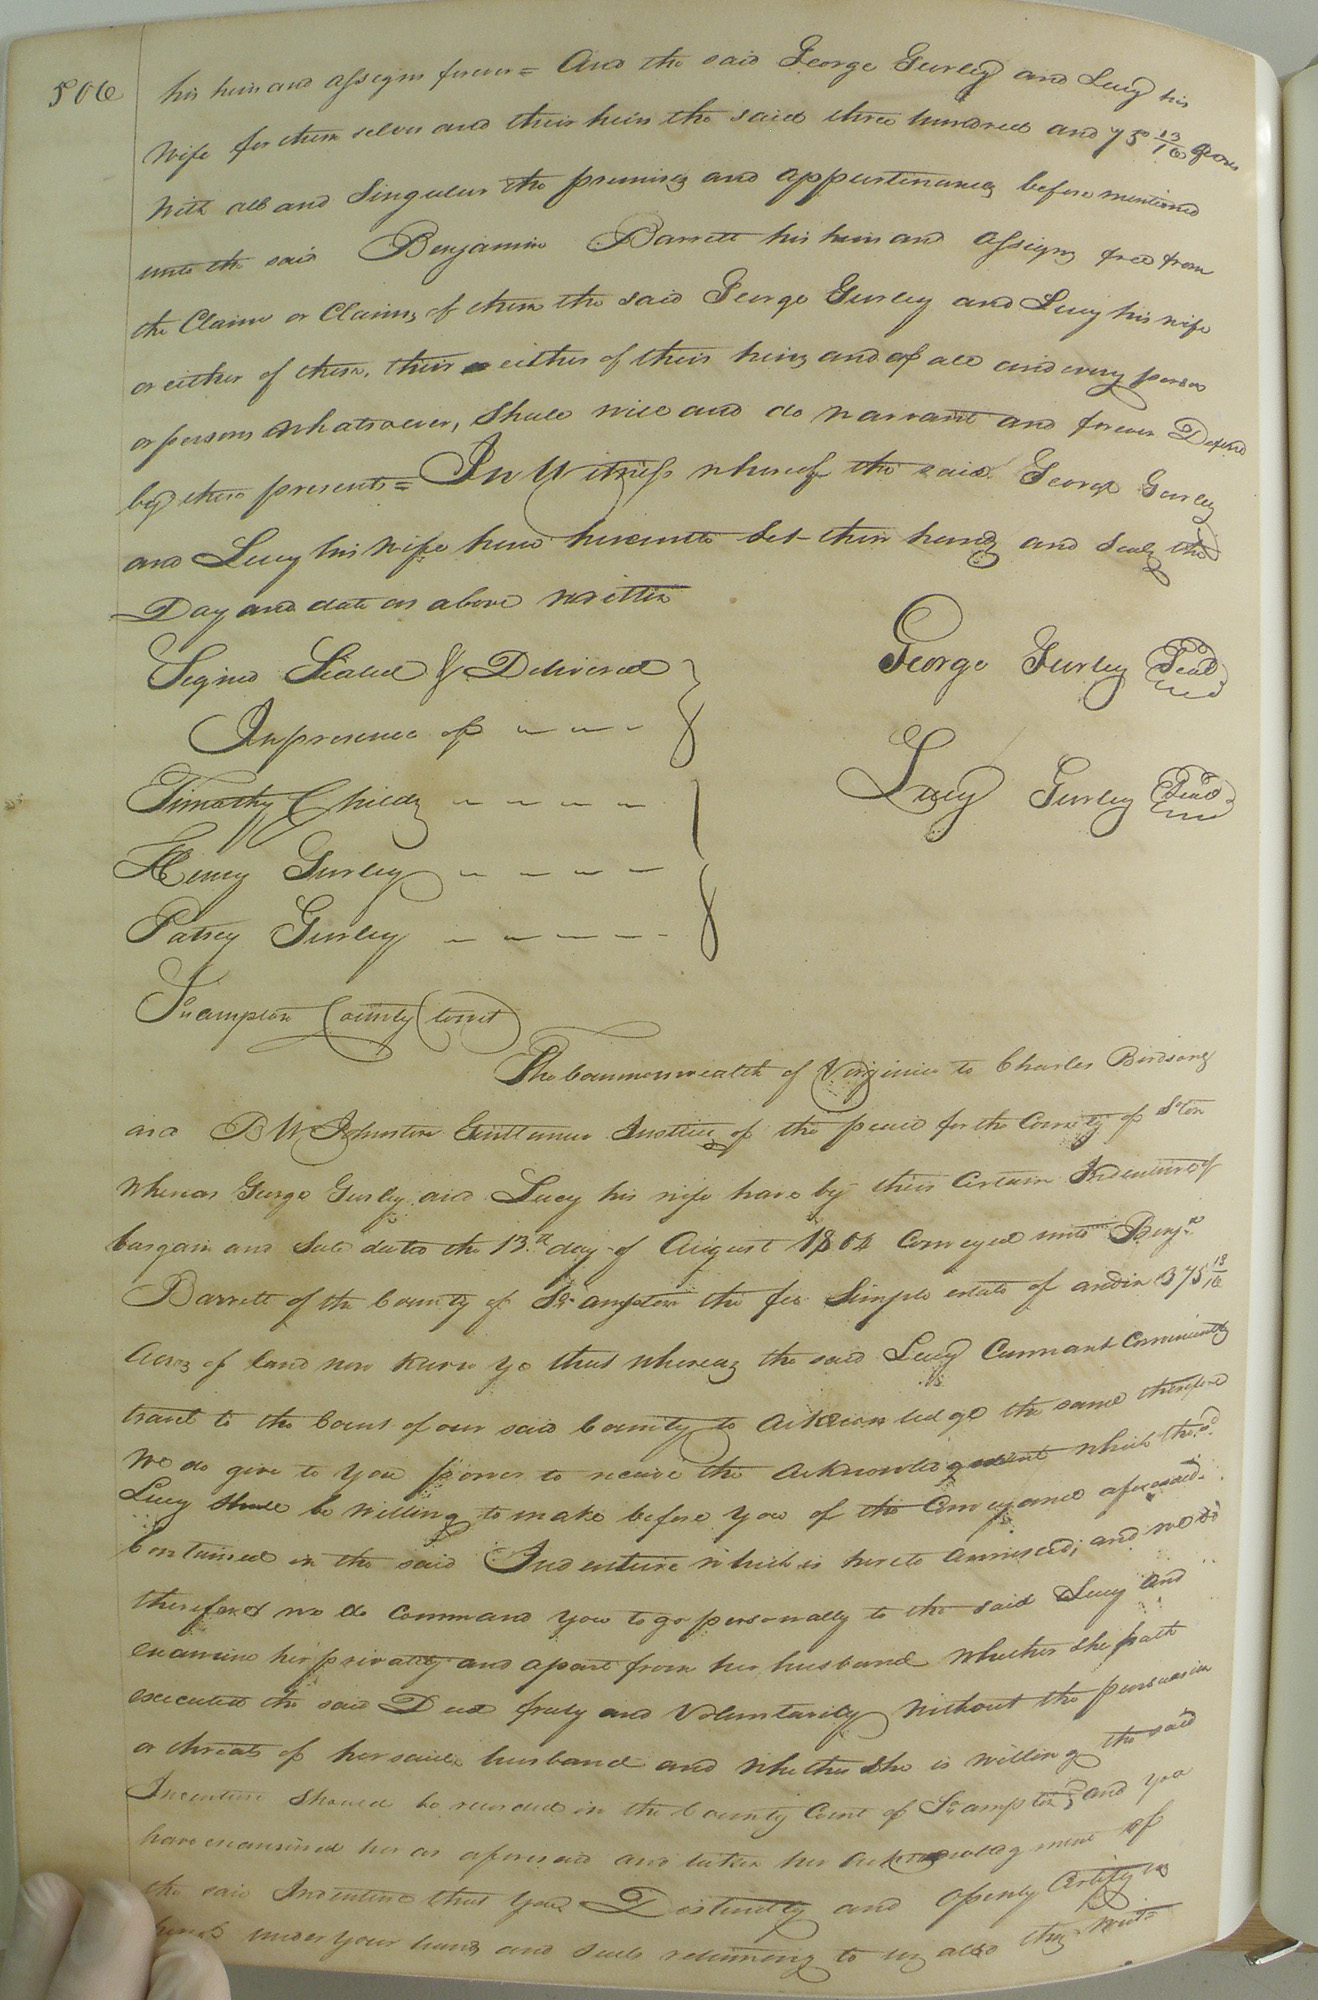 506
his heirs and assigns forever = And the said George Gurley and Lucy his
Wife for them selves and their heirs the said three hundred and 75 13/16 Acres
With all and Singular the premises and appurtinances before mentioned
unto the said Benjamin Barrett his heirs and assigns free from
the Claim or Claims of them the said George Gurley and Lucy his wife
or either of them, their or either of their heirs and of all and every person
or persons whatsoever, Shall will and do warrant and forever Defend
by these presents = In Witness whereof the said George Gurley
and Lucy his Wife have hereunto Set their hands and Seals the
Day and date as above written
Signed Sealed & Delivered
In presence of
George Gurley Seal
Timothy Childs
Lucy Gurley Seal
Henry Gurley
Patsey Gurley
Soampton County Court
The Commonwealth of Virginia to Charles Birdsong
and B W Johnston Gentlemen Justices of the peace for the County of Soton
Whereas George Gurley and Lucy his wife have by their Certain Indenture of
bargain and Sale dated the 13th day of August 1804 Conveyed unto Benjn
Barrett of the County of Soampton the fee Simple estate of and in 375 13/16
Acres of land now know ye that whereas the said Lucy Cannant Conveniently
travel to the Court of our said County to Acknowledge the same therefore
We do give to you power to receive the Acknowledgement which the sd
Lucy Shall be willing to make before you of the Conveyance aforesaid
Contained in the said Indenture which is hereto annexed; and we do
therefore we do Command you to go personally to the said Lucy and
examine her privately and apart from her husband Whether She hath
executed the said Deed freely and Voluntarily Without the persuasion
or threats of her said husband and whether She is willing the said
Indenture Should be recorded in the County Court of Soampton; and you
have examined her as aforesaid and taken her Acknowledgment of
the said Indenture that you Distinctly and Openly Certify us
hereof under your hands and seals returning to us also this Writ=